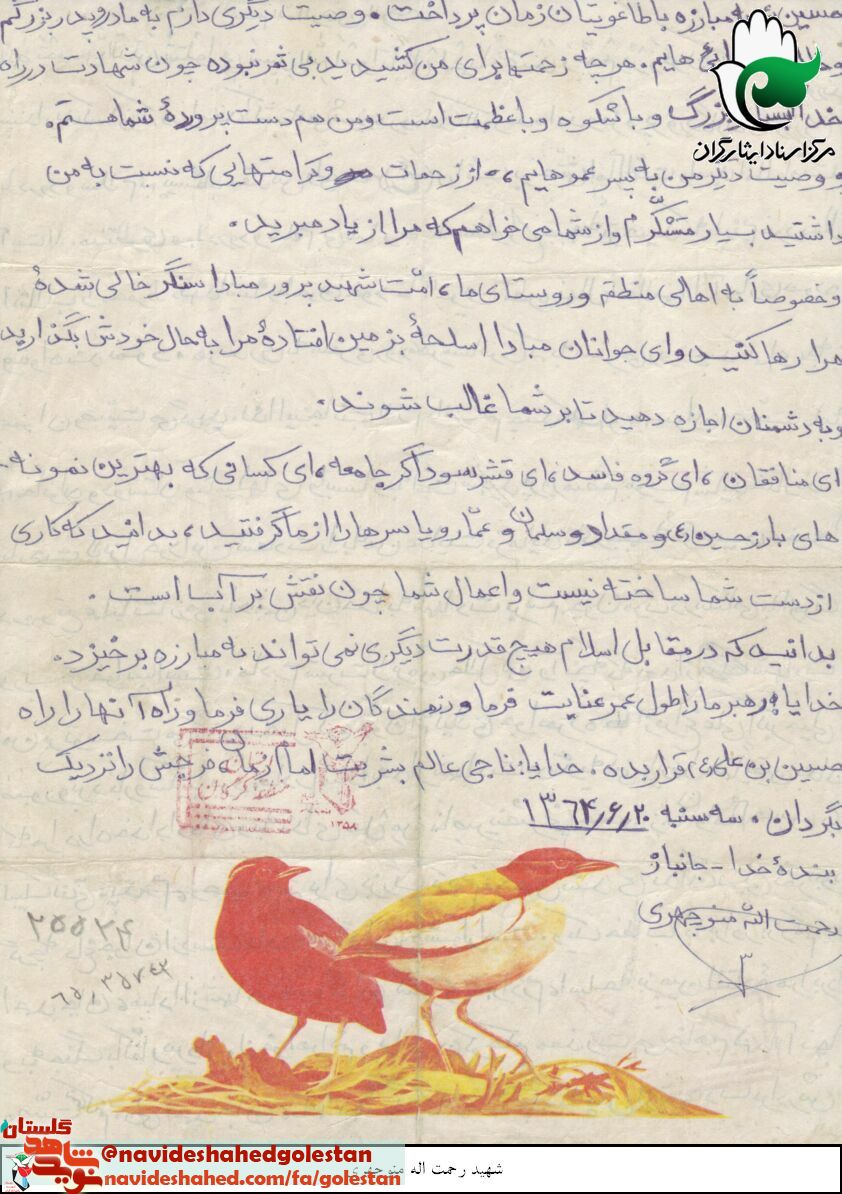 حسین (ع) به مبارزه با طاغوتیان زمان پرداخت. وصیت دیگری دارم به مادر و پدربزرگم
هایم. هر چه زحمت برای من کشیدید بی ثمر نبوده چون شهادت در راه
خدا بسیار بزرگ و باشکوه و باعظمت است و من هم دست پروردهٔ شما هستم.
و وصیت دیگر من به پسر عموهایم، از زحمات و کرامتهایی که نسبت به من
داشتید بسیار متشکّرم و از شما می خواهم که مرا از یاد مبرید.
و خصوصاً به اهالی منطقه و روستای ما، امّت شهید پرور مبادا سنگر خالی شدهٔ
مرا رها کنید و ای جوانان مبادا اسلحهٔ بزمین افتادهٔ مرا به حال خودش بگذارید
و به دشمنان اجازه دهید تا بر شما غالب شوند.
ای منافقان، ای گروه فاسد، ای قشر سوداگر جامعه، ای کسانی که بهترین نمونه
های بارز حسین (ع) و مقداد و سلمان و عمّار و یاسرها را از ما گرفتید، بدانید که کاری
از دست شما ساخته نیست و اعمال شما چون نقش بر آب است.
بدانید که در مقابل اسلام هیچ قدرت دیگری نمی تواند به مبارزه برخیزد.
خدایا رهبر ما را طول عمر عنایت فرما و رزمندگان را یاری فرما و راه آنها را راه
حسین بن علی (ع) قرار بده. خدایا: ناجی عالم بشریت امام زمان فرجش را نزدیک
بگردان. سه شنبه ۱۳۶۴٫۶٫۲۰
بندهٔ خدا - جانباز
رحمت الله منوچهری
۲۵۵۲۴
مرکز اسناد ایثارگران
۱۳۵۸
نوید شاهد گلستان
@navideshahedgolestan
navideshahed.com/fa/golestan
شهید رحمت اله منوچهری